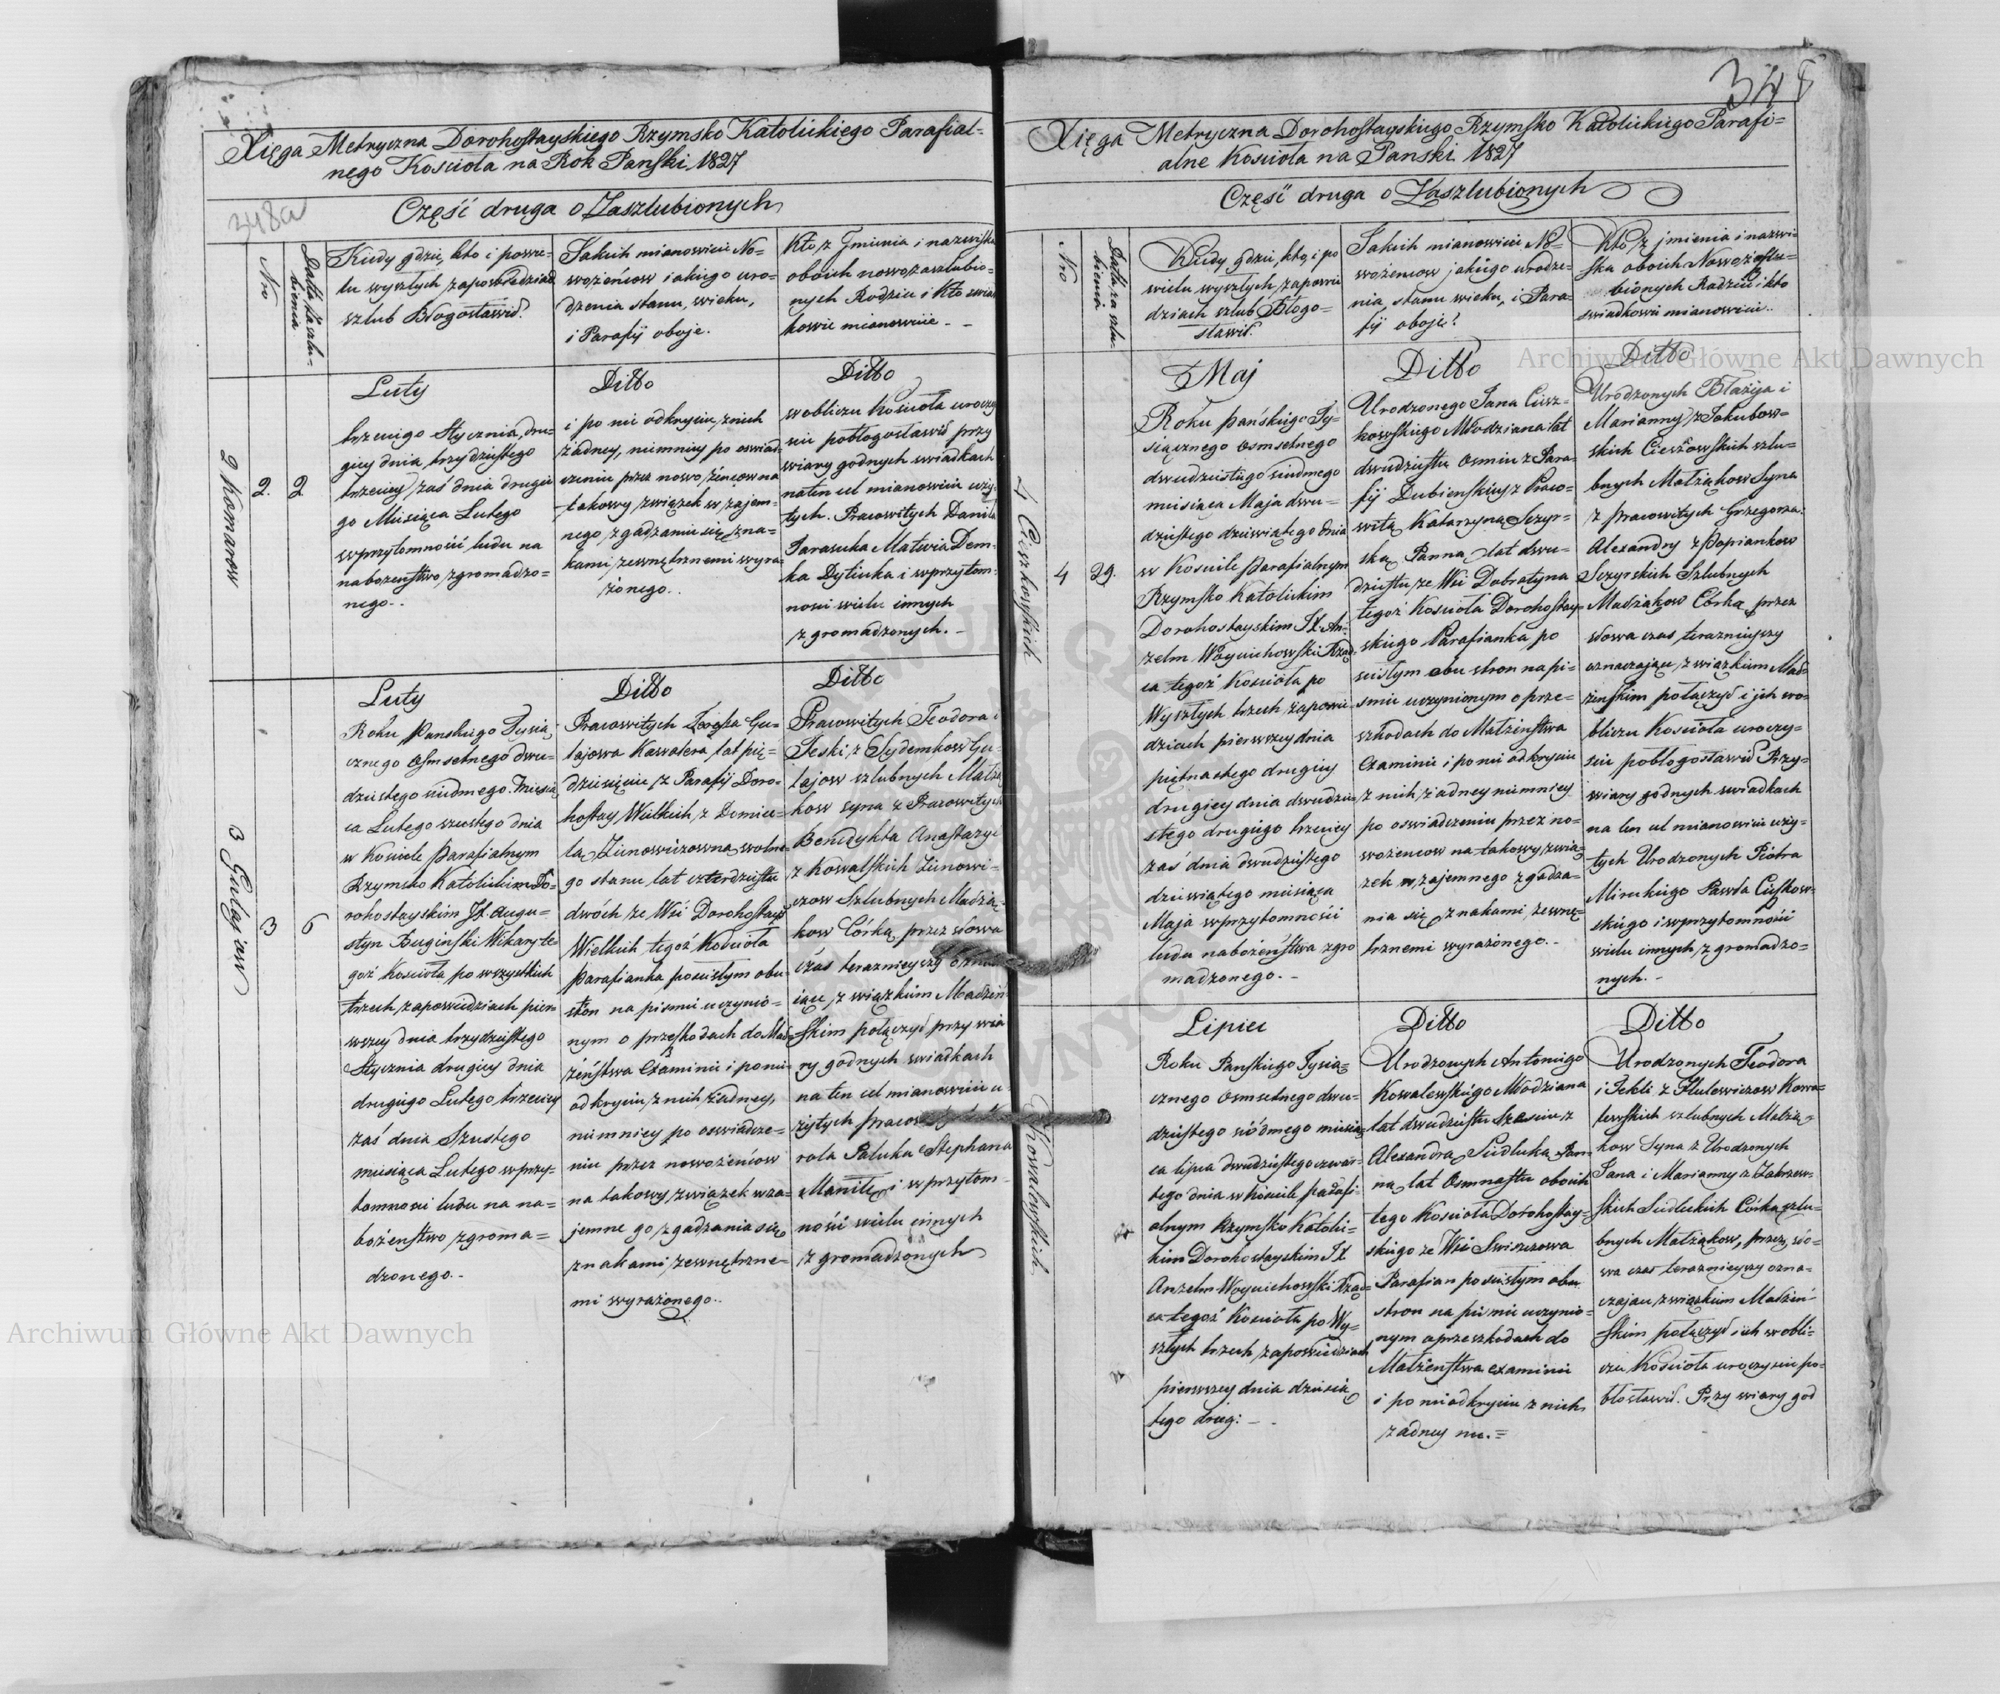 Xięga Metryczna Dorohostayskiego Rzymsko Katolickiego Parafial=
nego Kościoła na Rok Pański 1827
348a
Część druga o Zaszlubionych
Nro
Datta zaszlu-
bienia
Kiedy gdzie, kto i powie-
lu wyszłych zapowiedziach
szlub Błogosławił?
Jakich mianowicie No-
wożeńcow i akiego uro-
dzenia stanu, wieku,
i Parafij oboje.
Kto z Jmienia i nazwiska
oboich nowozaszlubio-
nych Rodzice i Kto świad
kowie mianowicie - -
2 Komarow
2.
2
Luty
trzeciego Stycznia, dru-
giey dnia trzydziestego
trzeciey zaś dnia drugie
go Miesiąca Lutego
wprzytomności ludu na
nabożeństwo zgromadzo-
nego.-
Ditto
i po nie odkryciu z nich
żadney, niemniey po oswiad
czeniu przez nowożeńcow na
takowy związek wzajem-
nego zgadzania się zna-
kami zewnętrznemi wyra
żonego..
Ditto
wobliczu Kościoła uroczy
scie pobłogosławił przy
wiary godnych swiadkach
naten cel mianowicie uży-
tych. Pracowitych Daniła
Parasuka Matwia Dem-
ka Dytiuka i wprzytom-
nosci wielu innych
zgromadzonych. -
3 Gulajow
3
6
Luty
Roku Pańskiego Tysią
cznego Osmsetnego dwu-
dziestego siudmego. Miesią
ca Lutego szustego dnia
w Kosciele Parafialnym
Rzymsko Katolickim Do-
rohostayskim JX. Augu-
styn Buginski Wikary te
goż Kościoła po wszystkich
trzech zapowiedziach pier-
wszey dnia trzydziestego
Stycznia drugiey dnia
drugiego Lutego, trzeciey
zaś dnia Szustego
miesiąca Lutego wprzy-
tomnosci ludu na na-
bożeństwo zgroma=
dzonego.-
Ditto
Pracowitych Gu-
lajowa Kawalera, lat pię-
dziesięciu, z Parafij Doro-
hostay Wielkich, z Domice-
lą Zinowiczowną, wolne-
go stanu lat czterdziestu
dwóch ze Wsi Dorohostay
Wielkich tegoż Kościoła
Parafianka poscisłym obu
stōn na pismie uczynio-
nym o przeszkodach do Mał-
żeństwa Examinie i ponie
odkryciu z nich żadney,
niemniey po oswiadcze-
niu przez nowożeńcow
na takowy związek wza-
jemne go zgadzania się
znakami zewnętrzne-
mi wyrażonego..
Ditto
Pracowitych Teodora i
Teski z Gu-
lajow szlubnych Małż
kow syna z Pracowitych
Benedykta Anastazyi
z Kowalskich Zinowi-
czow Szlubnych Madżą-
kow Córką, przez słowa
czas terazniejszy
iące, związkiem Madżeń
skim połączył przy wia
ry godnych swiadkach
na ten cel mianowicie u-
żytych Pracow
rola Paluka Stephana
Maniłę i wprzytom
ności wielu innych
zgromadzonych
348
Xięga Metryczna Dorohostayskiego Rzymsko Katolickiego Parafi=
alne Kościoła na Panski 1827
Część druga o Zaszlubionych
Nro
Datta zaszlu-
bienia
Kiedy gdzie, kto, i po
wielu wyszłych, zapowie
dziach szlub Błogo=
sławił?
Jakich mianowicie No-
wożencow jakiego urodze-
nia stanu wieku, i Para-
fij oboje?
Kto z jmienia i nazwi-
ska oboich Nowozaszlu-
bionych Radzice i kto
swiadkowie mianowicie..
4 Cieszkowskich
4
29.
Maj
Roku Pańskiego Ty-
siącznego osmsetnego
dwudziestego siudmego
miesiąca Maja dwu-
dziestego dziewiątego dnia
w Kościele Parafialnym
Rzymsko Katolickim
Dorohostayskim JX. An-
zelm Woyciechowski Rząd
ca tegoż Kościoła po
Wyszłych trzech zapowie
dziach pierwszey dnia
piętnastego drugiey
drugiey dnia dwudzie-
stego drugiego trzeciey
zaś dnia dwudziestego
dziewiątego miesiąca
Maja wprzytomności
ludu nabożeństwa zgro
madzonego. -
Ditto
Urodzonego Jana Ciesz-
kowskiego Młodziana lat
dwudziestu osmiu z Para
fij Dubienskiey z Praco-
witą Katarzyną Sczyr-
ską Panną, lat dwu-
dziestu, ze Wsi Dobratyna
tegoż Kościoła Dorohostay-
skiego Parafianka, po
scisłym obu stron na pi-
smie uczynionym o prze-
szkodach do Małżeństwa
Examinie i po nie odkryciu
z nich, żadney niemniey
po oswiadczeniu przez no-
wożencow na takowy zwią-
zek wzajemnego zgadza-
nia się znakami zewnę-
trznemi wyrażonego.-
Ditto
Urodzonych Błażeja i
Marianny z Jakubow-
skich Cieszkowskich szlu-
bnych Małżąkow Syna
z Pracowitych Grzegorza
Alexandry z Popiankow
Sczyrskich Szlubnych
Madżakow Córką, przez
słowa czas, terazniejszy
oznaczające, związkiem Mał-
żeńskim połączył i ich wo-
bliczu Kościoła uroczy-
scie pobłogosławił Przy-
wiary godnych swiadkach
na ten cel mianowicie uży-
tych Urodzonych Piotra
Mireckiego Pawła Cieszkow-
skiego i wprzytomności
wielu innych, zgromadzo-
nych.-
Kowalewskich
Lipiec
Roku Panskiego Tysią-
cznego osmsetnego dwu-
dziestego siódmego miesią
ca lipca dwudziestego czwar-
tego dnia w kościele parafi
alnym Rzymsko Katolic-
kim Dorohostayskim JX
Anzelm Woyciechowski Rząd-
ca tegoż Kościoła po Wy-
szłych trzech zapowiedziach
pierwszey dnia dziesią
tego drug: - -
Ditto
Urodzonych Antoniego
Kowalewskiego Młodziana
lat dwudziestu z
Alexandrą Siedlecką Pan-
ną, lat osmnastu oboich
tego Kościoła Dorohostay-
skiego ze Wsi Swiszczowa
Parafian poscisłym obu
stron na pismie uczynio-
nym oprzeszkodach do
Małżeństwa examinie
i po nieodkryciu z nich
żadney nie.=
Ditto
Urodzonych Teodora
i Tekli z Kowa-
lewskich szlubnych Małżą-
kow Syna z Urodzonych
Jana i Marianny z Zakrzew-
skich Siedleckich Córką szlu-
bnych Małżąkow, przez sło-
wa czas terazniejszy ozna-
czające, związkiem Małżeń-
skim połączył ich wobli-
czu Kościoła uroczyscie po-
błosławił. Przy wiary god
Archiwum Główne Akt Dawnych
Archiwum Główne Akt Dawnych